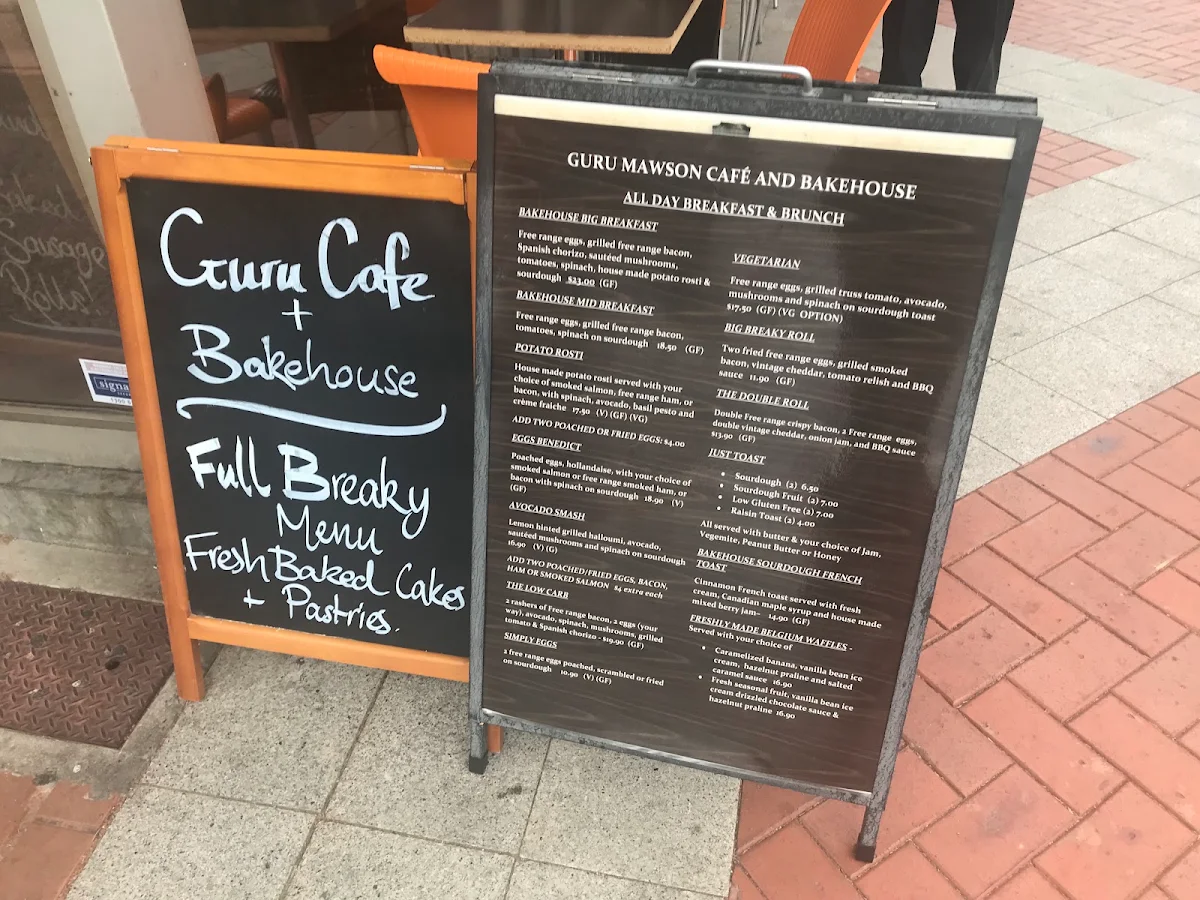 Guru Cafe
+
Bakehouse
Full Breaky
Menu
Fresh Baked Cakes
+ Pastries.
GURU MAWSON CAFÉ AND BAKEHOUSE
ALL DAY BREAKFAST & BRUNCH
BAKEHOUSE BIG BREAKFAST
Free range eggs, grilled free range bacon,
Spanish chorizo, sautéed mushrooms,
tomatoes, spinach, house made potato rosti &
sourdough $23.00 (GF)
BAKEHOUSE MID BREAKFAST
Free range eggs, grilled free range bacon,
tomatoes, spinach on sourdough 18.50 (GF)
POTATO ROSTI
House made potato rosti served with your
choice of smoked salmon, free range ham, or
bacon, with spinach, avocado, basil pesto and
crème fraiche 17.50 (V) (GF) (VG)
ADD TWO POACHED OR FRIED EGGS: $4.00
EGGS BENEDICT
Poached eggs, hollandaise, with your choice of
smoked salmon or free range smoked ham, or
bacon with spinach on sourdough 18.90 (V)
(GF)
AVOCADO SMASH
Lemon hinted grilled halloumi, avocado,
sautéed mushrooms and spinach on sourdough
16.90 (V) (G)
ADD TWO POACHED/FRIED EGGS, BACON,
HAM OR SMOKED SALMON $4 extra each
THE LOW CARB
2 rashers of Free range bacon, 2 eggs (your
way), avocado, spinach, mushrooms, grilled
tomato & Spanish chorizo - $19.90 (GF)
SIMPLY EGGS
2 free range eggs poached, scrambled or fried
on sourdough 10.90 (V) (GF)
VEGETARIAN
Free range eggs, grilled truss tomato, avocado,
mushrooms and spinach on sourdough toast
$17.50 (GF) (VG OPTION)
BIG BREAKY ROLL
Two fried free range eggs, grilled smoked
bacon, vintage cheddar, tomato relish and BBQ
sauce 11.90 (GF)
THE DOUBLE ROLL
Double Free range crispy bacon, 2 Free range eggs,
double vintage cheddar, onion jam, and BBQ sauce
$13.90 (GF)
JUST TOAST
• Sourdough (2) 6.50
• Sourdough Fruit (2) 7.00
• Low Gluten Free (2) 7.00
• Raisin Toast (2) 4.00
All served with butter & your choice of Jam,
Vegemite, Peanut Butter or Honey
BAKEHOUSE SOURDOUGH FRENCH
TOAST
Cinnamon French toast served with fresh
cream, Canadian maple syrup and house made
mixed berry jam- 14.90 (GF)
FRESHLY MADE BELGIUM WAFFLES -
Served with your choice of
• Caramelized banana, vanilla bean ice
cream, hazelnut praline and salted
caramel sauce 16.90
• Fresh seasonal fruit, vanilla bean ice
cream drizzled chocolate sauce &
hazelnut praline 16.90
Baked
Sausage
Rolls
signa